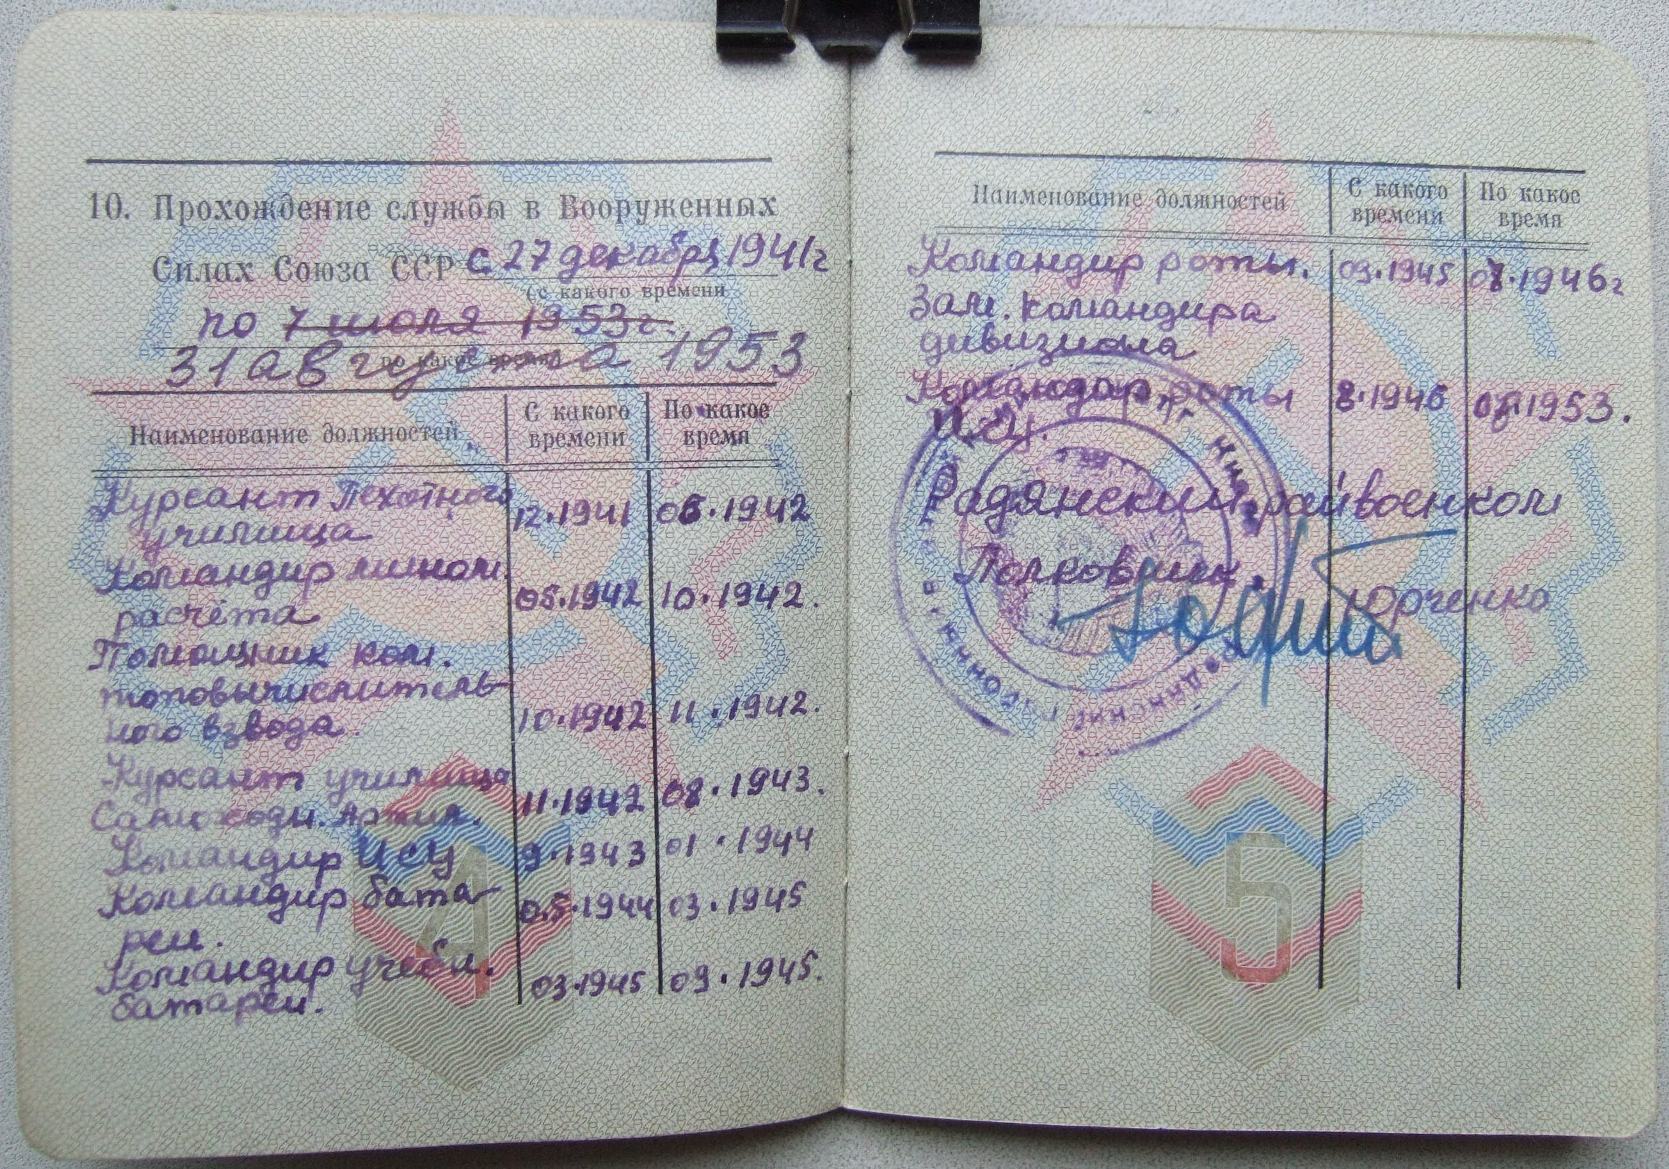 10. Прохождение службы в Вооруженных
Силах Союза ССР с 27 декабря 1941г
(с какого времени
по 7 июля 1953г.
по какое время
31 августа 1953
Наименование должностей
С какого времени
По какое время
Курсант Пехотного
училища
12.1941 06.1942
Командир мином.
расчёта
05.1942 10.1942.
Помощник ком.
топовычислитель-
ного взвода.
10.1942 11.1942.
Курсант училища
Самоходн. Артил.
11.1942 08.1943.
Командир ИСУ 9.1943 01.1944
Командир бата-
реи.
05.1944 03.1945
Командир учебн.
батареи.
03.1945 09.1945.
4
Наименование должностей
С какого времени
По какое время
Командир роты. 09.1945 07.1946г
Зам. командира
дивизиона
Командир роты 8.1946 07.1953.
Радянский райвоенком
Полковник.
Юрченко
5